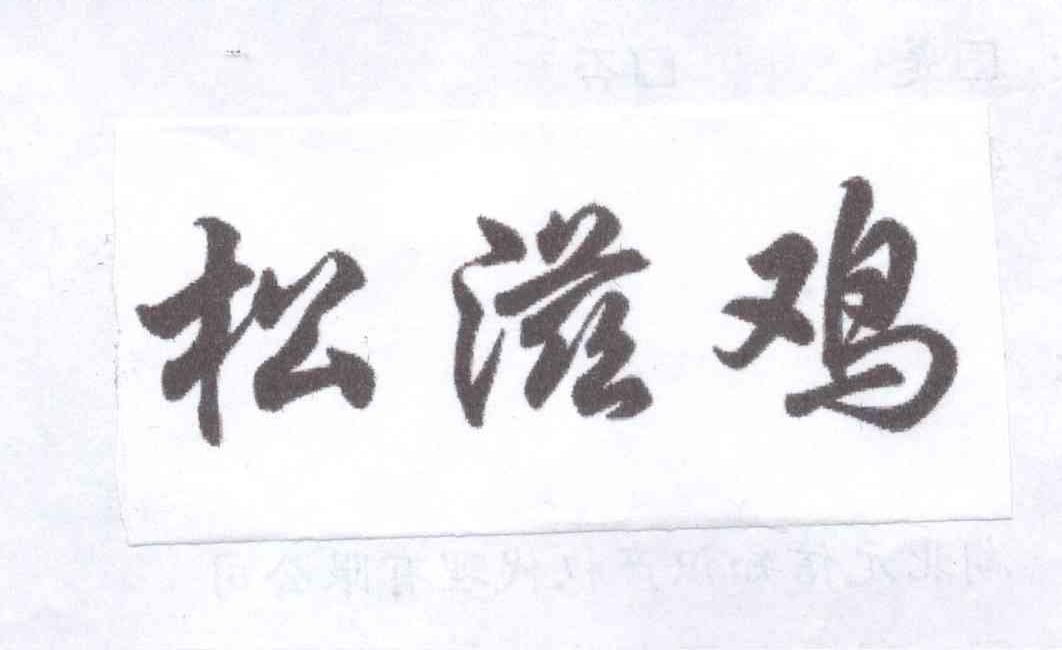 松滋鸡